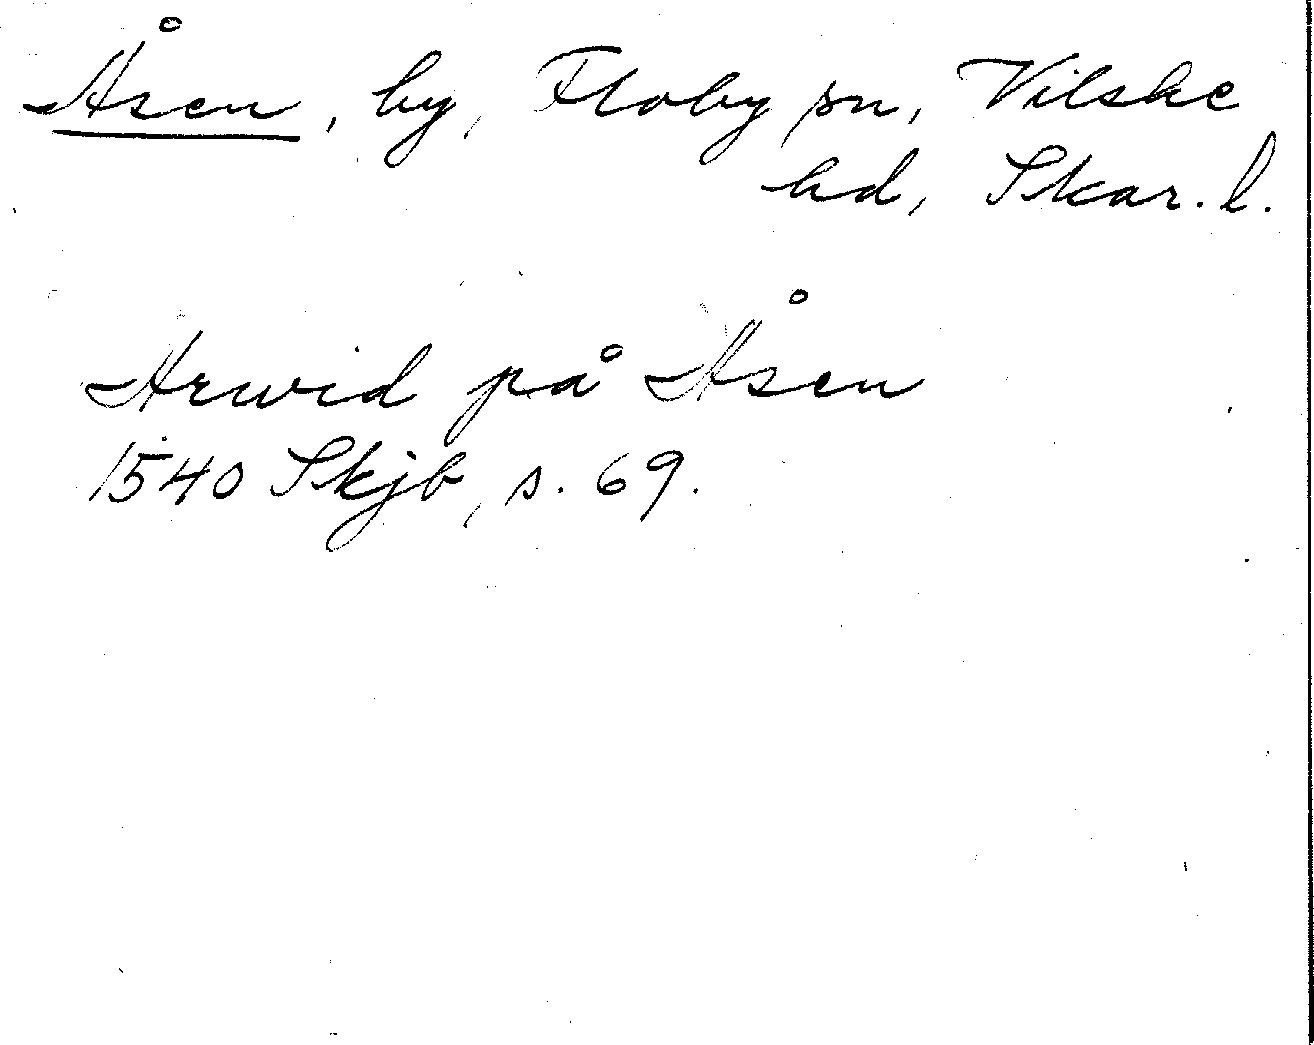 Åsen, by, Floby sn, Vilske
hd, Skar. l.
Arwid på Åsen
1540 Skjb, s. 69.